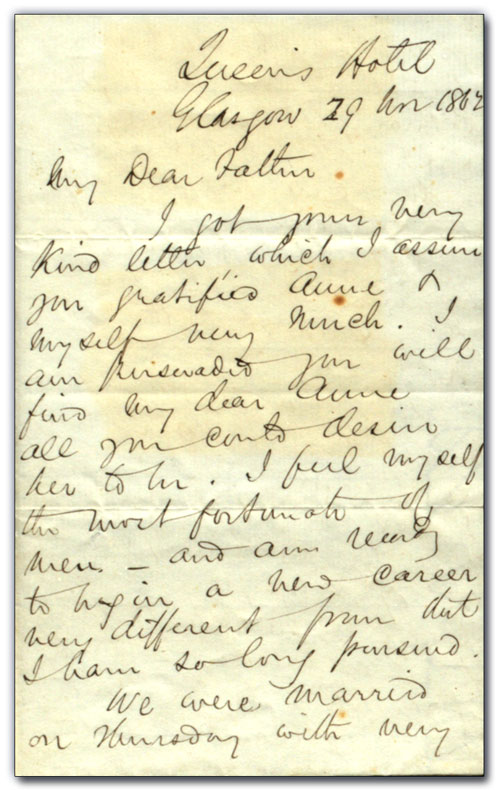 Queen's Hotel
Glasgow 29 Nov 186
My Dear Father.
I got your very
kind letter which I assure
you gratified Annie &
myself very much. I
am perswaded you will
find my dear Annie
all you could desire
her to be. I feel myself
the most fortunate of
men – and am ready
to begin a new career
very different from that
I have so long pursued.
We were married
on Thursday with very